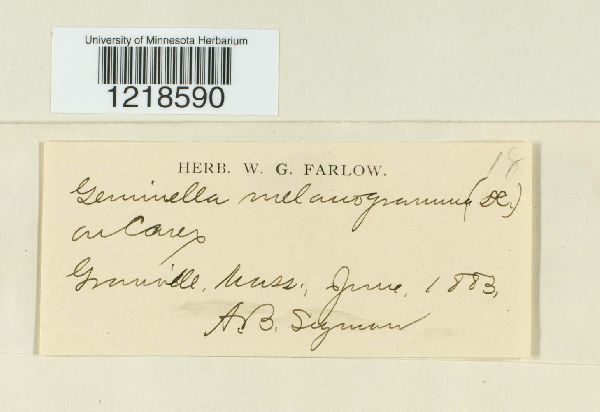 University of Minnesota Herbarium
1218590
18
HERB. W. G. FARLOW.
Geminella melanogramma (DC.)
on Carex
Granville, Mass., June, 1883,
A. B. Seymour